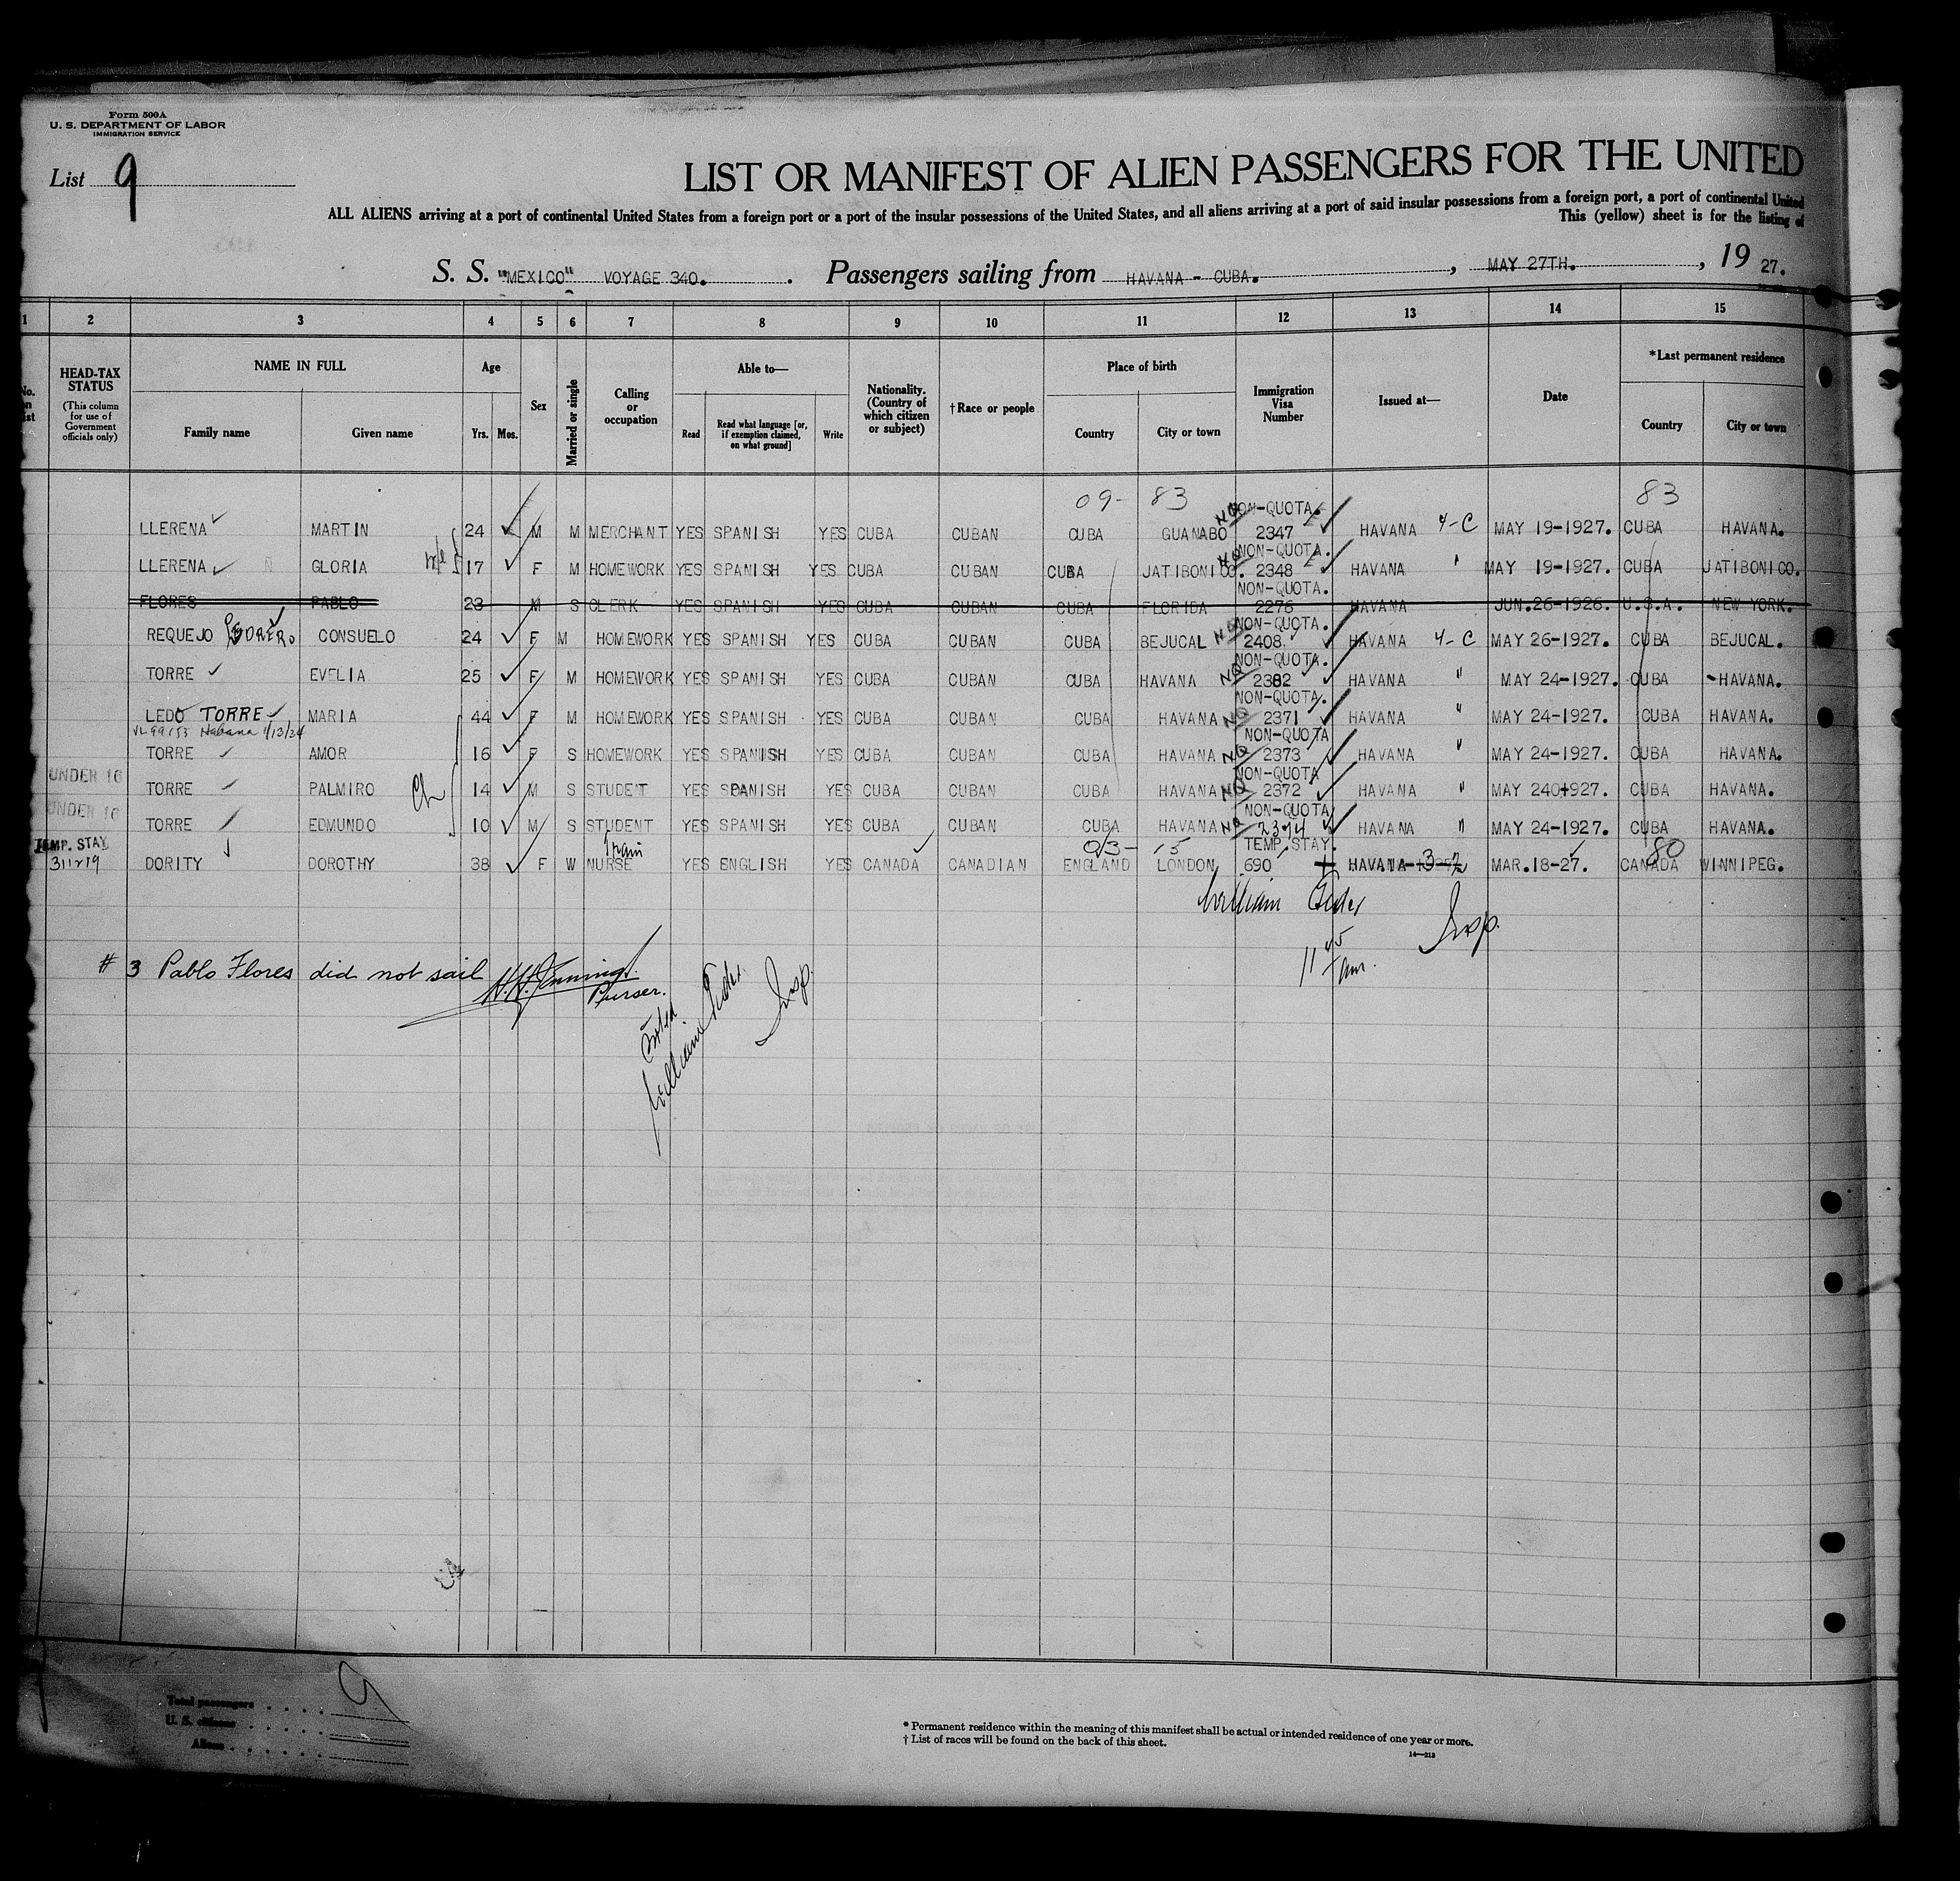 Form 500A
U. S. DEPARTMENT OF LABOR
IMMIGRATION SERVICE
List 9
LIST OR MANIFEST OF ALIEN PASSENGERS FOR THE UNITED
ALL ALIENS arriving at a port of continental United States from a foreign port or a port of the insular possessions of the United States, and all aliens arriving at a port of said insular possessions from a foreign port, a port of continental United
This (yellow) sheet is for the listing of
S. S. "MEXICO" VOYAGE 340. Passengers sailing from HAVANA - CUBA. , MAY 27TH. , 19 27.
1 2 3 4 5 6 7 8 9 10 11 12 13 14 15
HEAD-TAX STATUS (This column for use of Government officials only) NAME IN FULL Family name Given name Age Yrs. Mos. Sex Married or single Calling or occupation Able to— Read Read what language [or, if exemption claimed, on what ground] Write Nationality. (Country of which citizen or subject) † Race or people Place of birth Country City or town Immigration Visa Number Issued at— Date * Last permanent residence Country City or town
09- 83 83
NON-QUOTA.
LLERENA MARTIN 24 M M MERCHANT YES SPANISH YES CUBA CUBAN CUBA GUANABO NQ 2347 HAVANA 4-C MAY 19-1927. CUBA HAVANA.
NON-QUOTA.
LLERENA GLORIA 17 F M HOMEWORK YES SPANISH YES CUBA CUBAN CUBA JATIBONICO. NQ 2348 HAVANA " MAY 19-1927. CUBA JATIBONICO.
NON-QUOTA.
FLORES PABLO 23 M S CLERK YES SPANISH YES CUBA CUBAN CUBA FLORIDA 2276 HAVANA JUN.26-1926. U.S.A. NEW YORK.
NON-QUOTA.
REQUEJO CONSUELO 24 F M HOMEWORK YES SPANISH YES CUBA CUBAN CUBA BEJUCAL NQ 2408 HAVANA 4-C MAY 26-1927. CUBA BEJUCAL.
NON-QUOTA.
TORRE EVELIA 25 F M HOMEWORK YES SPANISH YES CUBA CUBAN CUBA HAVANA NQ 2382 HAVANA " MAY 24-1927. CUBA HAVANA.
NON-QUOTA.
LEDO TORRE MARIA 44 F M HOMEWORK YES SPANISH YES CUBA CUBAN CUBA HAVANA NQ 2371 HAVANA " MAY 24-1927. CUBA HAVANA.
NON-QUOTA
TORRE AMOR 16 F S HOMEWORK YES SPANISH YES CUBA CUBAN CUBA HAVANA NQ 2373 HAVANA " MAY 24-1927. CUBA HAVANA.
NON-QUOTA
UNDER 16 TORRE PALMIRO Ch 14 M S STUDENT YES SPANISH YES CUBA CUBAN CUBA HAVANA NQ 2372 HAVANA " MAY 240+927. CUBA HAVANA.
NON-QUOTA
UNDER 16 TORRE EDMUNDO 10 M S STUDENT YES SPANISH YES CUBA CUBAN CUBA HAVANA NQ 2374 HAVANA " MAY 24-1927. CUBA HAVANA.
TEMP. STAY TEMP.STAY.
DORITY DOROTHY 38 F W NURSE YES ENGLISH YES CANADA CANADIAN ENGLAND LONDON 690 HAVANA 3-2 MAR.18-27. CANADA 80 WINNIPEG.
Insp.
# 3 Pablo Flores did not sail
Purser.
Insp.
Total passengers 9
U. S. citizens
Aliens
* Permanent residence within the meaning of this manifest shall be actual or intended residence of one year or more.
† List of races will be found on the back of this sheet.
14—213